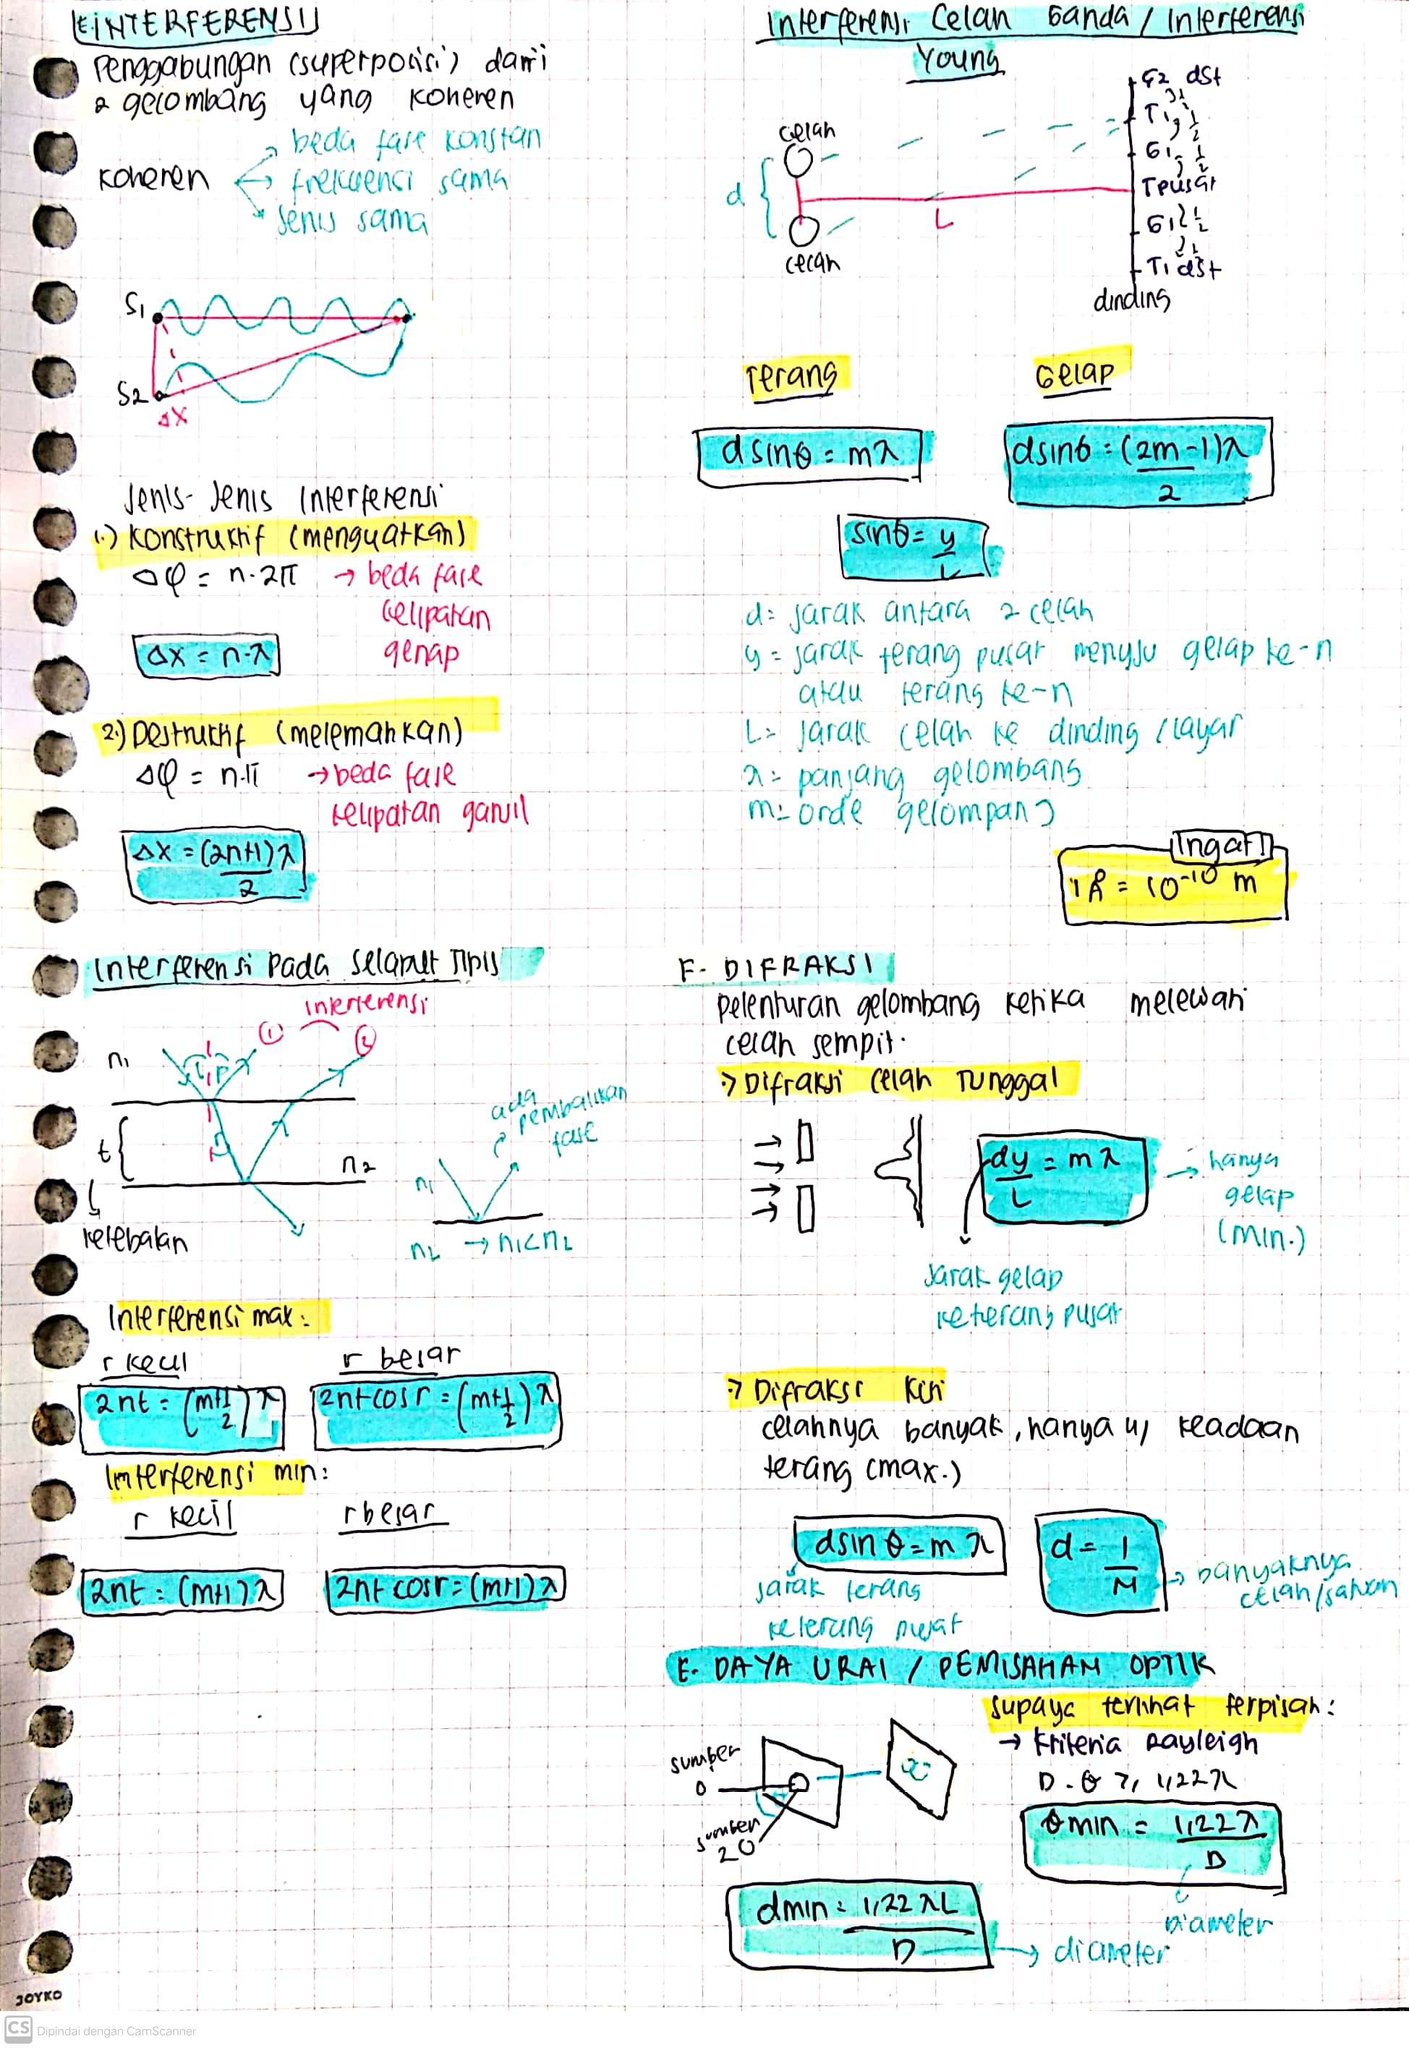 E. INTERFERENSI
Penggabungan (superposisi) dari
2 gelombang yang koheren
koheren
beda fase konstan
frekuensi sama
Jenis sama
S1
S2
Δx
Jenis-Jenis Interferensi
1.) Konstruktif (menguatkan)
Δφ = n·2π → beda fase
kelipatan
genap
Δx = n·λ
2.) Destruktif (melemahkan)
Δφ = n·π → beda fase
kelipatan ganjil
Δx = (2n+1)λ
2
Interferensi Pada Selaput Tipis
Interferensi
1
2
n1
i
r
t
n2
ketebalan
ada
pembalikan
fase
n1
n2 → n1<n2
Interferensi max:
r kecil
r besar
2nt = (m+1/2)λ
2nt cos r = (m+1/2)λ
Interferensi min:
r kecil
r besar
2nt = (m+1)λ
2nt cos r = (m+1)λ
JOYKO
Interferensi Celah Ganda / Interferensi
Young
celah
d
celah
L
G2 dst
T1
1/2
G1
1/2
Tpusat
G1
1/2
T1 dst
dinding
Terang
Gelap
d sin θ = mλ
d sin θ = (2m-1)λ
2
sin θ = y
L
d = jarak antara 2 celah
y = jarak terang pusat menuju gelap ke-n
atau terang ke-n
L = jarak celah ke dinding / layar
λ = panjang gelombang
m = orde gelombang
Ingat!
1 Å = 10⁻¹⁰ m
F. DIFRAKSI
pelenturan gelombang ketika melewati
celah sempit.
:) Difraksi Celah Tunggal
dy = mλ
L
→ hanya
gelap
(min.)
Jarak gelap
ke terang pusat
:) Difraksi Kisi
celahnya banyak, hanya u/ keadaan
terang (max.)
d sin θ = m λ
jarak terang
ke terang pusat
d = 1
N
→ banyaknya
celah/satuan
E. DAYA URAI / PEMISAHAN OPTIK
Supaya terlihat terpisah:
→ Kriteria Rayleigh
D·θ ≥ 1,22λ
sumber
sumber
2
θmin = 1,22λ
D
Diameter
dmin = 1,22 λL
D → diameter
CS Dipindai dengan CamScanner